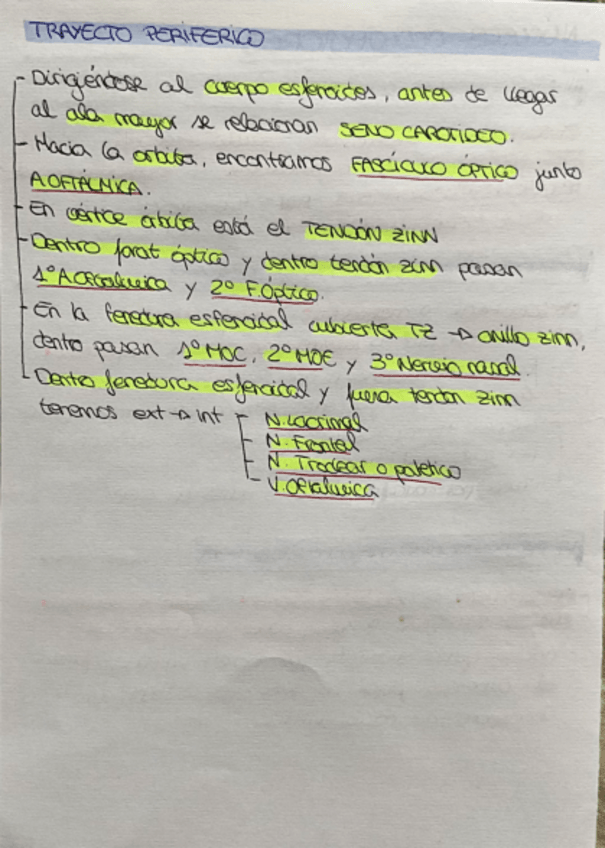 TRAYECTO PERIFERICO
- Dirigiéndose al cuerpo esfenoides, antes de llegar
al ala mayor se relacionan SENO CAROTIDEO.
- Hacia la órbita, encontramos FASCÍCULO ÓPTICO junto
A.OFTÁLMICA.
- En vértice órbita está el TENDÓN ZINN
- Dentro forat óptico y dentro tendón zinn pasan
1º A.Oftalmica y 2º F.Óptico.
- En la fenedura esfenoidal cubierta TZ → anillo zinn,
dentro pasan 1º MOC, 2º MOE y 3º Nervio nasal.
- Dentro fenedura esfenoidal y fuera tendon zinn
tenemos ext → int - N. Lacrimal
- N. Frontal
- N. Troclear o patético
- V. Oftalmica